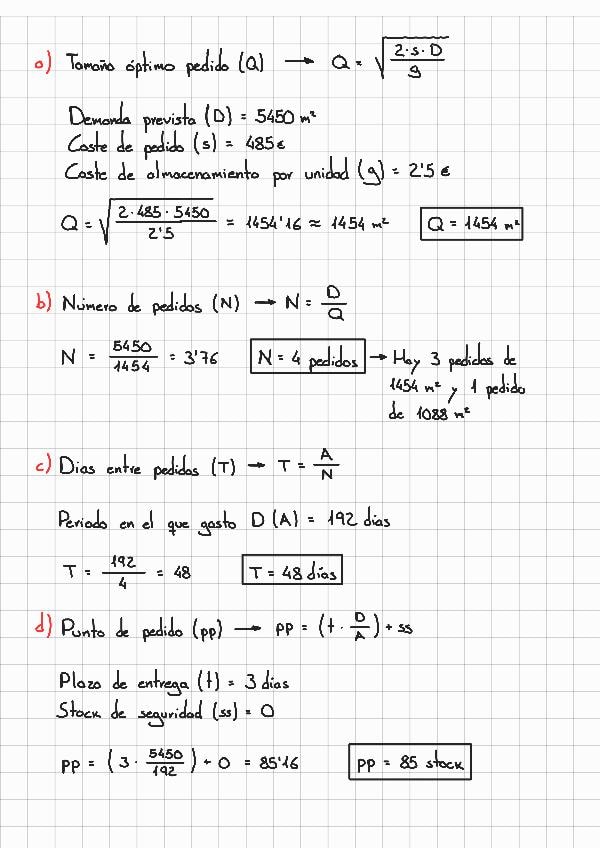 a) Tamaño óptimo pedido (Q) → Q = √(2·s·D / g)
Demanda prevista (D) = 5450 m²
Coste de pedido (s) = 485€
Coste de almacenamiento por unidad (g) = 2'5 €
Q = √(2·485·5450 / 2'5) = 1454'16 ≈ 1454 m² Q = 1454 m²
b) Número de pedidos (N) → N = D / Q
N = 5450 / 1454 = 3'76 N = 4 pedidos → Hay 3 pedidos de
1454 m² y 1 pedido
de 1088 m²
c) Días entre pedidos (T) → T = A / N
Periodo en el que gasto D (A) = 192 días
T = 192 / 4 = 48 T = 48 días
d) Punto de pedido (pp) → pp = (t · D / A) + ss
Plazo de entrega (t) = 3 días
Stock de seguridad (ss) = 0
pp = (3 · 5450 / 192) + 0 = 85'16 pp = 85 stock